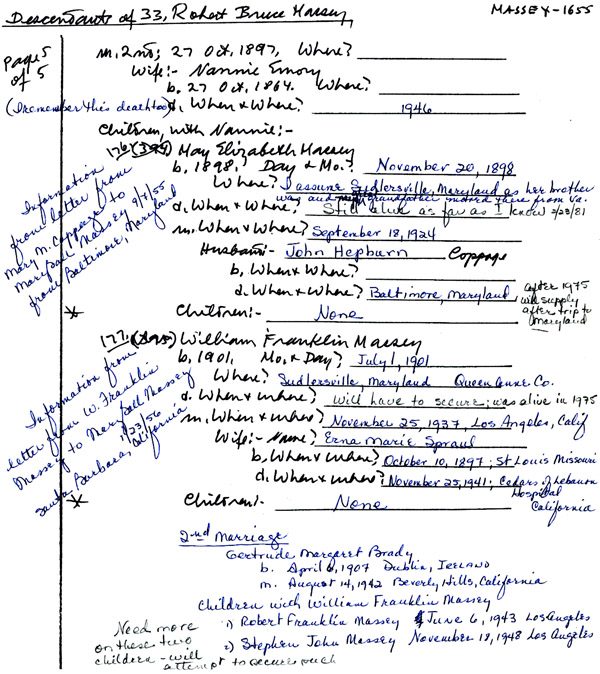 Descendants of 33, Robert Bruce Massey
MASSEY-1655
Page 5
of 5
m. 2nd; 27 Oct, 1897, Where?
Wife:- Nannie Emory
b. 27 Oct. 1864. Where?
(I remember this death too) d. When & Where? 1946
Children, with Nannie:-
176, (394) May Elizabeth Massey
b. 1898. ? Day & Mo.? November 20, 1898
Where? I assume Sudlersville, Maryland as her brother
was and grandfather moved there from Va.
d. When & Where? Still alive as far as I know 2/23/81
m. When & Where? September 18, 1924
Husband:- John Hepburn Coppage
b. When & Where?
d. When & Where? Baltimore, Maryland after 1975
will supply
after trip to
Maryland
Children:- None
Information
from letter from
Mary M. Coppage to
Mary Ball Massey 9/7/55
from Baltimore, Maryland
*
177, (395) William Franklin Massey
b. 1901. Mo. & Day? July 1, 1901
Where? Sudlersville, Maryland Queen Anne Co.
d. When & where? Will have to secure; was alive in 1975
m. When & where? November 25, 1937, Los Angeles, Calif
Wife:- Name? Erna Marie Spraul
b. When & where? October 10, 1897; St Louis Missouri
d. When & where? November 25, 1941; Cedars of Lebanon
Hospital
California
Children:- None
Information from
letter from W. Franklin
Massey to Mary Ball Massey
1/23/56
Santa Barbara, California
*
2nd Marriage
Gertrude Margaret Brady
b. April 6, 1907 Dublin, Ireland
m. August 14, 1942 Beverly Hills, California
Children with William Franklin Massey
1) Robert Franklin Massey June 6, 1943 Los Angeles
2) Stephen John Massey November 18, 1948 Los Angeles
Need more
on these two
children - will
attempt to secure such